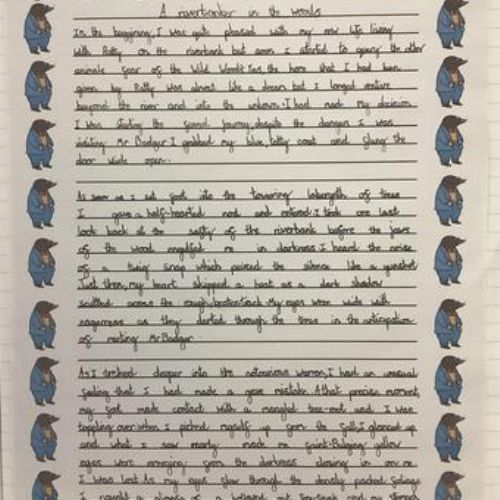 A riverbanker in the woods
In the beggining, I was quite pleased with my new life living
with Ratty on the riverbank but soon I started to query the other
animals fear of the Wild Wood! Yes, the home that I had been
given by Ratty was almost like a dream but I longed venture
beyond the river and into the unkown. I had made my decision.
I was starting the scared journey, despite the dangers I was
visiting Mr Badger. I grabbed my blue, tatty coat and flung the
door wide open.
As soon as I set foot into the towering labyrinth of trees
I gave a half-hearted nod and entered. I took one last
look back at the safty of the riverbank before the jaws
of the wood engulfed me in darkness. I heard the noise
of a twig snap which pierced the silence like a gunshot.
Just then, my heart skipped a beat as a dark shadow
scuttled across the rough, beaten track. My eyes were wide with
eagerness as they darted through the trees in the anticipation
of meeting Mr Badger.
As I deeper into the notourious warren, I had an unusual
feeling that I had made a grave mistake. At that precise moment,
my foot made contact with a mangled tree-root and I was
toppling over. When I picked myself up from the fall, I glanced up
and what I saw nearly made me faint. Bulging yellow
eyes were emerging from the darkness closing in on me.
I was lost. As my eyes flew through the densely packed foliage
I caught a glimpse of a